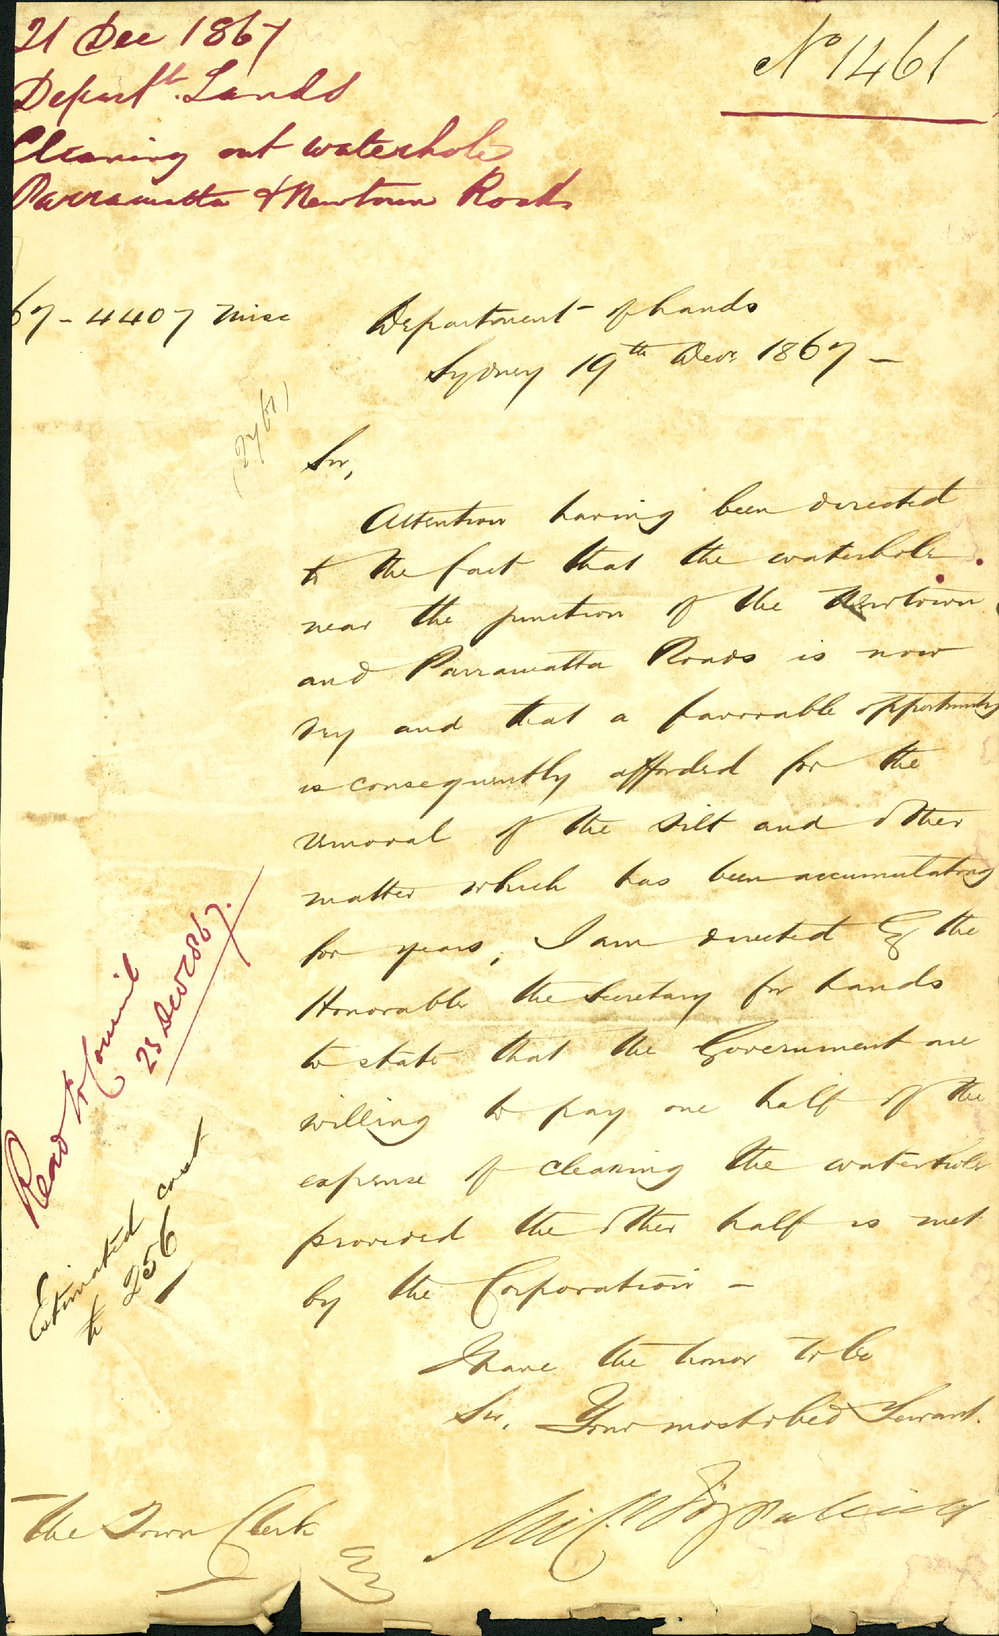 21 Dec 1867
Departt. Lands
Cleaning out waterhole
Parramatta & Newtown Roads
No 1461
67-4407 Misc
Department of Lands
Sydney 19th Decr 1867 -
Sir,
Attention having been directed
to the fact that the waterhole
near the junction of the Newtown
and Parramatta Roads is now
dry and that a favorable opportunity
is consequently afforded for the
removal of the silt and other
matter which has been accumulating
for years, I am directed by the
Honorable the Secretary for Lands
to state that the Government are
willing to pay one half of the
expense of cleaning the waterhole
provided the other half is met
by the Corporation -
I have the honor to be
Sir, Your most obed Servant.
Mich Fitzpatrick
The Town Clerk
Read to Council
23 Decr 1867.
Estimated cost
£ 256